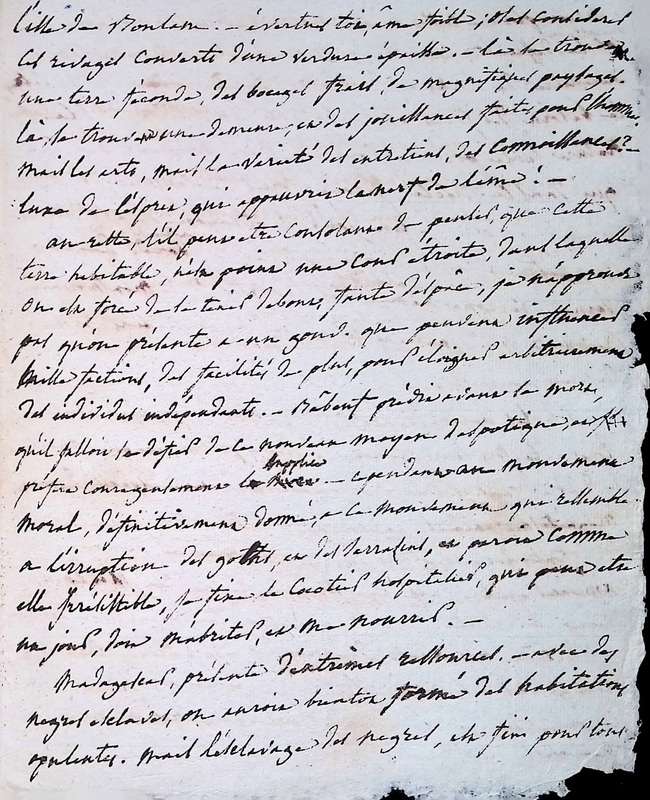 l'ille de Boulam. — évertue toi, âme foible ; oses considerer
ces rivages couverts d'une verdure épaisse. — là se trouve
une terre féconde, des bocages frais, de magnifiques paysages.
là, se trouve une demeure, et des jouissances faites pour l'homme.
mais les arts, mais la varieté des entretiens, des connoissances ? —
luxe de l'esprit, qui appauvrit le nerf de l'âme ! —
au-reste, s'il peut etre consolant de penser, que cette
terre habitable, n'est point une cour étroite, dans laquelle
on est forcé de se tenir debout, faute d'espace ; je n'approuve
pas qu'on présente a un gouv. que peuvent influencer
mille factions, des facilités de plus, pour éloigner arbitrairement
des individus indépendants. — Babeuf prédit avant sa mort,
qu'il falloit se défier de ce nouveau moyen despotique, et
préféra courageusement le supplice — cependant au mouvement
moral, définitivement donné, a ce mouvement qui ressemble
a l'irruption des goths, et des Sarrasins, et paroit comme
elle irrésistible, je fixe le Cocotier hospitalier, qui peut etre
un jour, doit m'abriter, et me nourrir. —
Madagascar, présente d'extrêmes ressources. — avec des
negres esclaves, on auroit bientot formé des habitations
opulentes. mais l'esclavage des negres, est fini pour tous